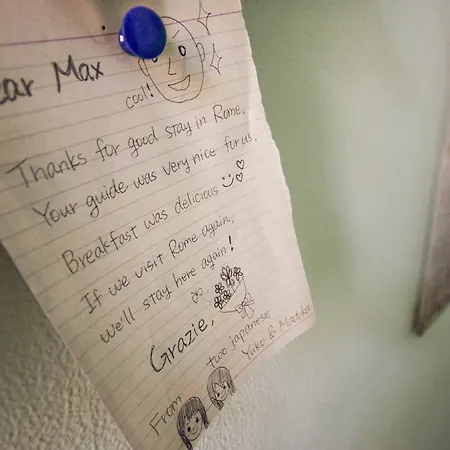 ear Max
cool!
Thanks for good stay in Rome.
Your guide was very nice for us.
Breakfast was delicious
If we visit Rome again,
we'll stay here again!
Grazie,
From two japanese
Yuko &